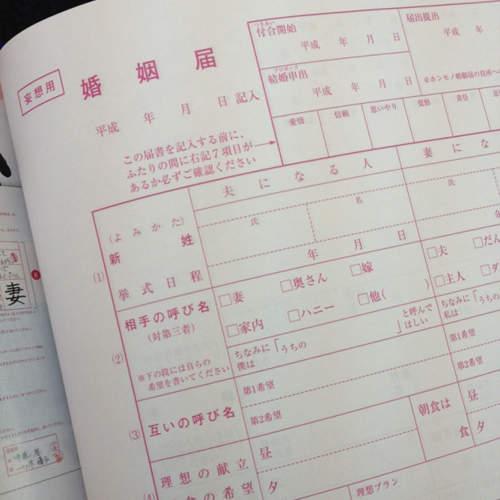 妄想用
婚姻届
平成 年 月 日 記入
この届書を記入する前に、
ふたりの間に右記7項目が
あるか必ずご確認ください
付合開始
平成 年 月 日
結婚申出
平成 年 月 日
届出提出
平成
愛情
信頼
思いやり
覚悟
責任
夫になる人
妻にな
(よみかた)
氏
名
氏
(1)
新 姓
挙式日程
年 月 日
相手の呼び名
(対第三者)
□妻
□奥さん
□嫁
□夫
□だん
□家内
□ハニー
□他( )
□主人
□ダ
(2)
※下の段には自らの
希望を書いてください
ちなみに「うちの
僕は
」と呼んで
ほしい
ちなみに「う
私は
(3)
互いの呼び名
第1希望
第2希望
第1希望
第2希望
理想の献立
昼
夕
朝食は
食
昼
夕
理想プラン
妻